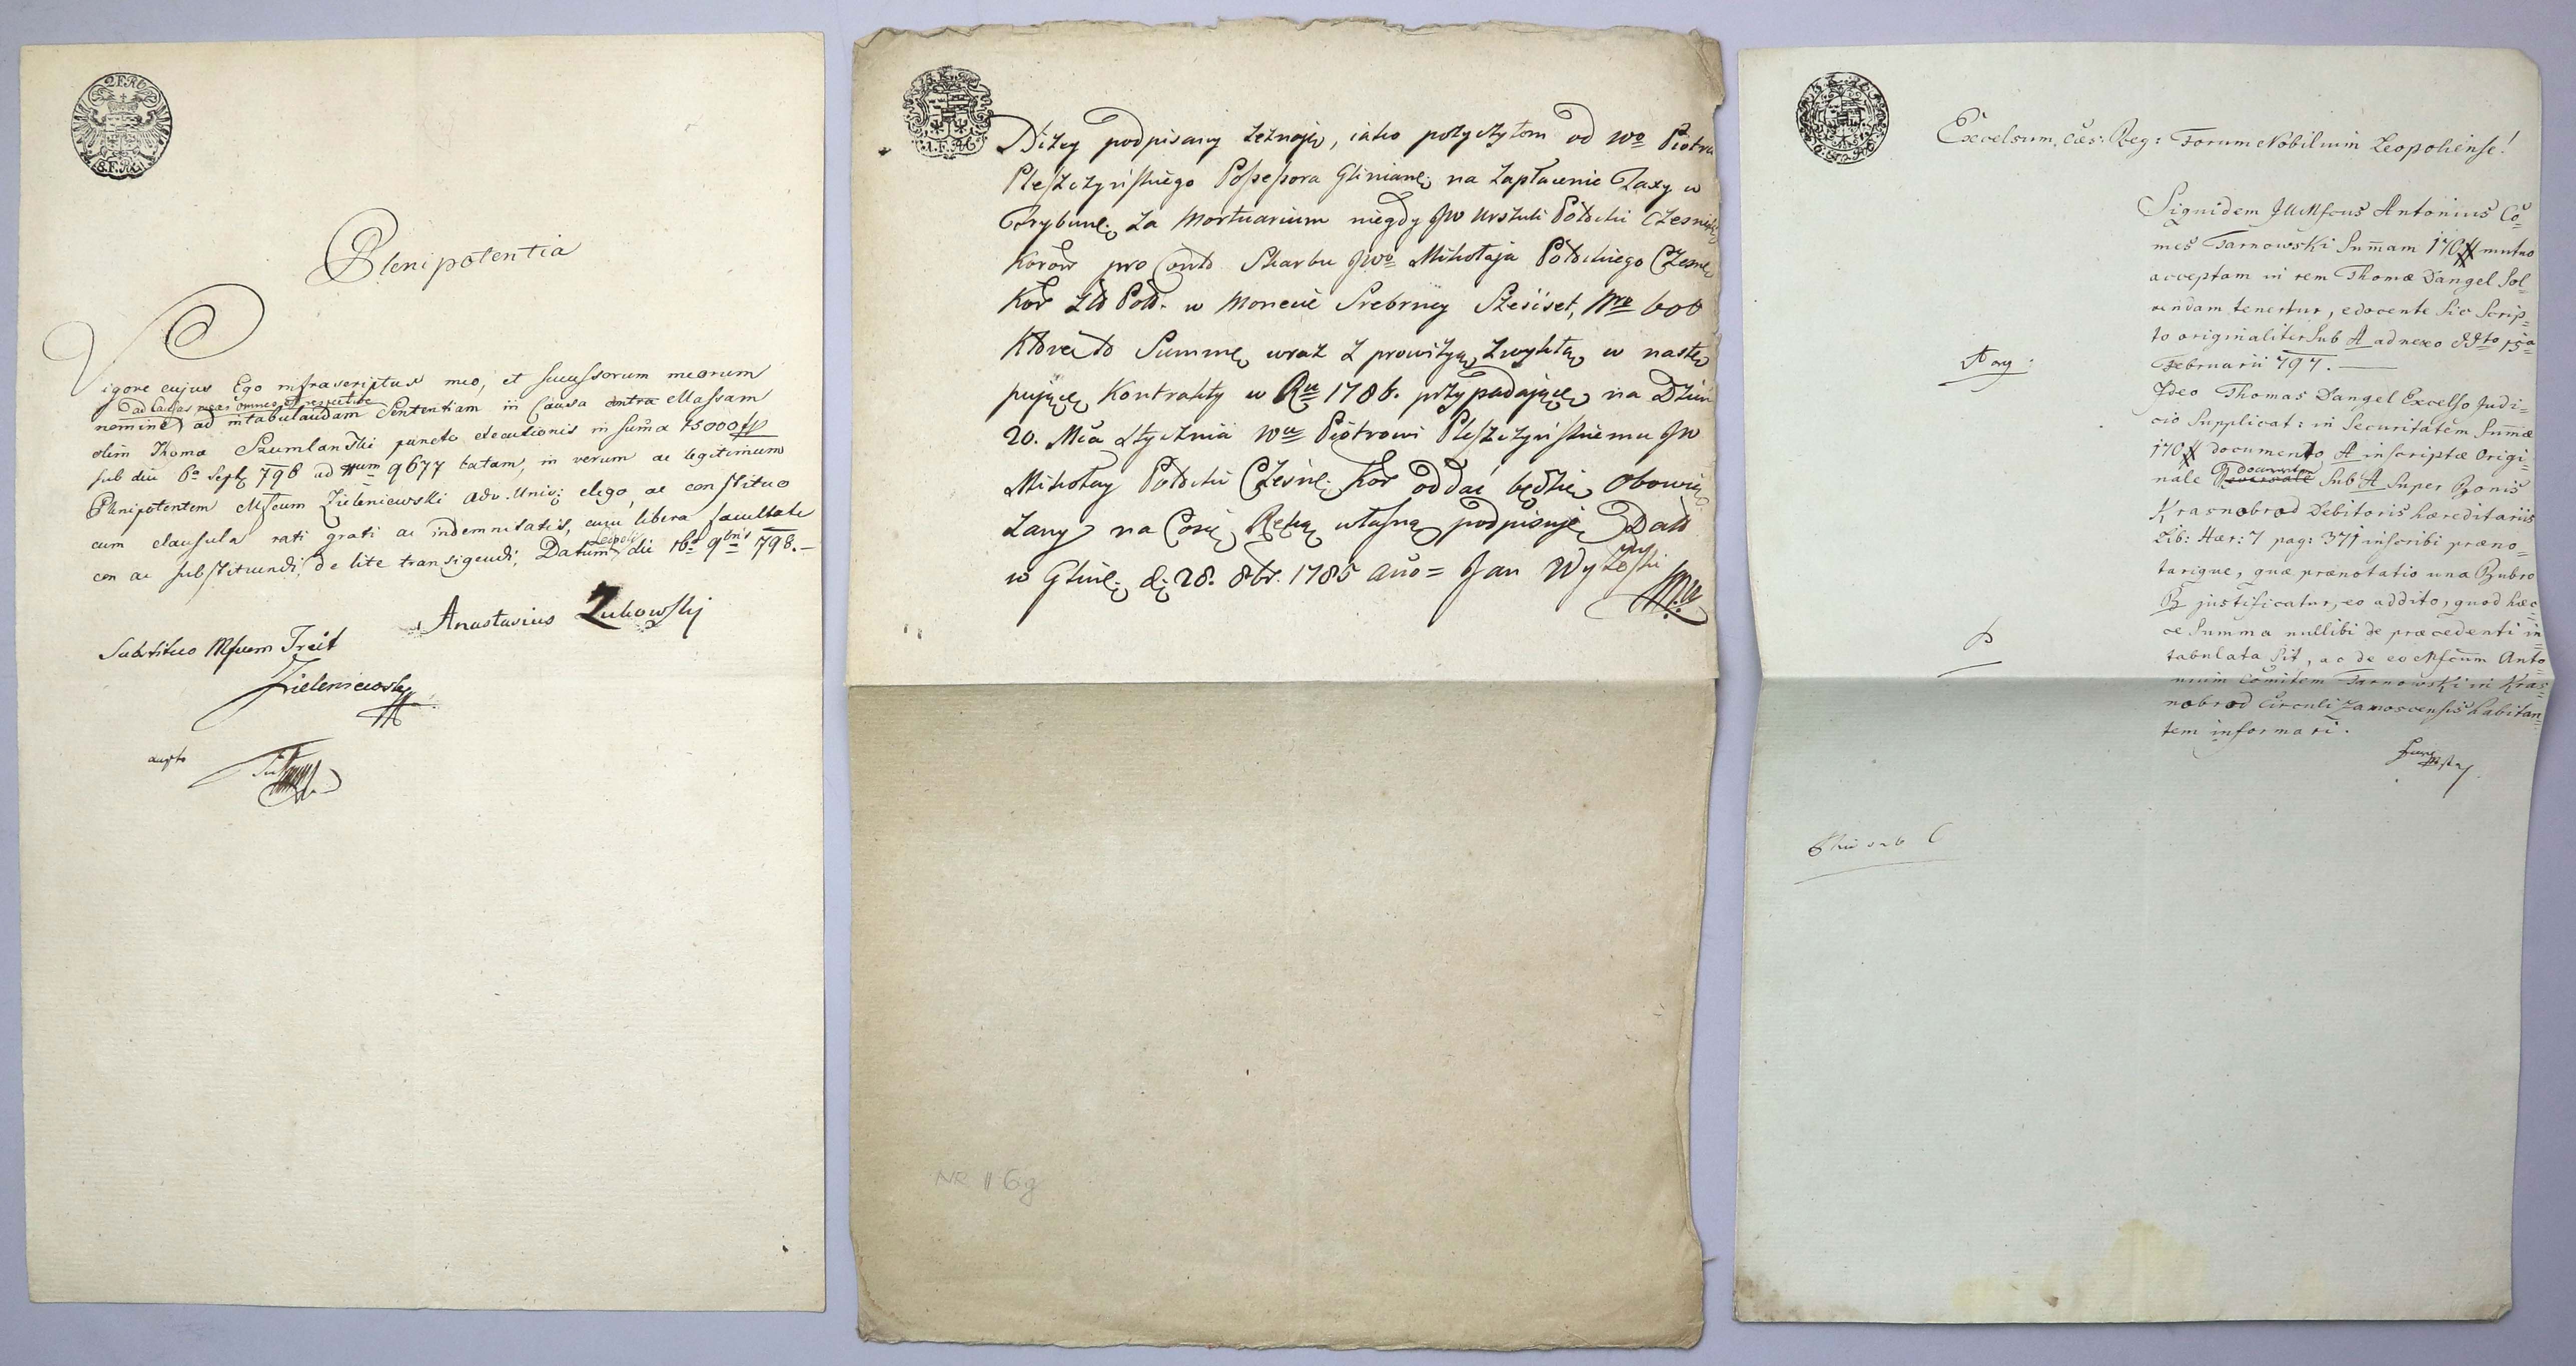 Plenipotentia
Vigore cujus Ego infrascriptus meo, et sucessorum meorum
ad Causas meas omnes et respective
nomine ad intabulandam Sententiam in Causa contra Massam
olim Thoma Szumlanski puncto executionis in suma 15000
sub die 6a Sept 798 ad Num 9677 latam, in verum ac legitimum
Plenipotentem Mfcum Zieleniewski Adv. eligo, ac constituo
cum clausula rati grati ac indemnitatis, cum libera facultate
Leopoli
ac substituendi, de lite transigendi, Datum die 16a 9bris 798.–
Anastasius Zukowski
Substituo Mfcum Treit
Zieleniewski
acupto
Niżey podpisany zeznaję, iako pożyczyłem od Wo Piotra
Pleszczyńskiego Possessora Glinianc. na zapłacenie Taxy w
Trybunę. za Mortuarium niegdy JW Urszuli Potocki Czesnik.
Koron pro Conto Skarbu JWo Mikołaja Potockiego Czesn.
Kor Zło Pol. w Monecie Srebrney Sześciset, Nro 600
Którą to Summę wraz z prowizyą zwykłą w nastę
pujące Kontrakty w Ru 1786. przypadające na Dzień
20. Mca Stycznia Wu Piotrowi Pleszczyńskiemu JW
Mikołay Potocki Czesnik. Kor oddać będzie Obowią
zany na Co się Ręką własną podpisuję Dato
w Glinc. d. 28. 8br. 1785 Ano = Jan Wyżoski
NR 116g
Excelsum, Cæs: Reg: Forum Nobilium Leopoliense!
Siquidem JllMfcus Antonius Co=
mes Tarnowski Sumam 170 mutuo
acceptam in rem Thomæ Dangel Sol=
vendam tenertur, edocente Sic Scrip=
to originaliter Sub A adnexo ddto 15a
Februarii 797. —
Ideo Thomas Dangel Excelso Judi=
cio Supplicat: in Securitatem Sumæ
170 documento A inscriptæ Origi=
documentum
nale Sub A Super Bonis
Krasnobrod Debitoris hæreditariis
Lib: Hær: 7 pag: 371 inscribi præno=
tarique, quæ prænotatio una Rubro
B justificatur, eo addito, quod hæc=
ce Summa nullibi de præcedenti in
tabulata sit, ac de eo Mfcum Anto=
nium Comitem Tarnowski in Kras=
nobrod Circuli Zamoscensis habitan=
tem informari.